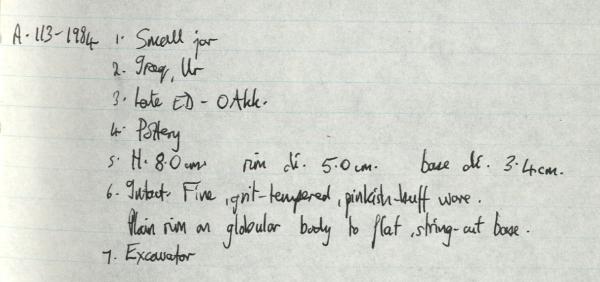 A.113-1984 1. Small jar
2. Iraq, Ur
3. Late ED - OAkk.
4. Pottery
5. H. 8.0cm rim di. 5.0cm. base di. 3.4cm.
6. Intact. Fine, grit-tempered, pinkish-buff ware.
Plain rim on globular body to flat, string-cut base.
7. Excavator